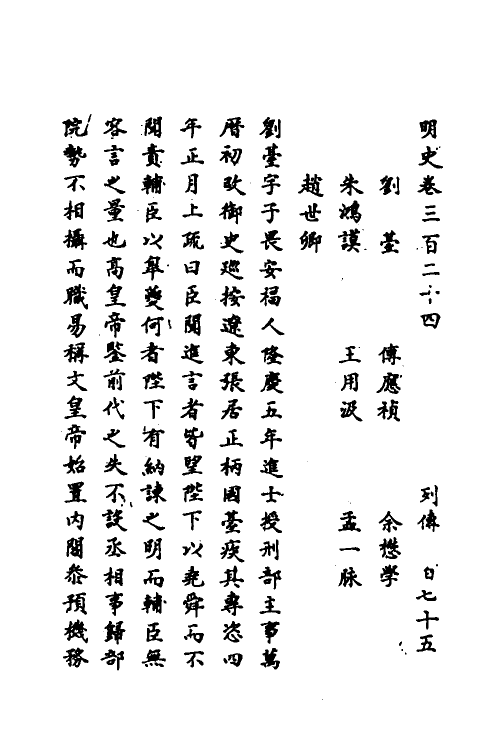 明史卷三百二十四 列傳 百七十五
劉臺 傅應禎 余懋學
朱鴻謨 王用汲 孟一脉
趙世卿
劉臺字子畏安福人隆慶五年進士授刑部主事萬
曆初改御史巡按遼東張居正柄國臺疾其專恣四
年正月上疏曰臣聞進言者皆望陛下以堯舜而不
聞責輔臣以皋夔何者陛下有納諫之明而輔臣無
容言之量也高皇帝鑒前代之失不設丞相事歸部
院勢不相攝而職易稱文皇帝始置內閣叅預機務